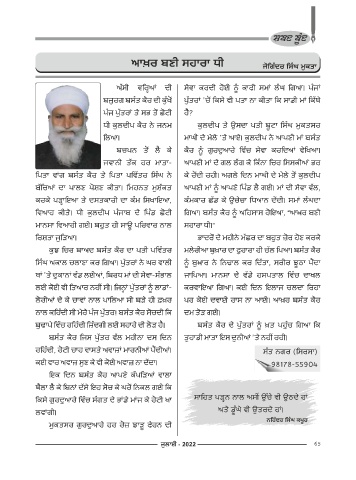 ਸ਼ਬਦ ਬੂੰਦ
ਆਖ਼ਰ ਬਣੀ ਸਹਾਰਾ ਧੀ
ਜੋਗਿੰਦਰ ਸਿੰਘ ਮੁਕਤਾ
ਅੱਸੀ ਵਰ੍ਹਿਆਂ ਦੀ
ਬਜ਼ੁਰਗ ਬਸੰਤ ਕੌਰ ਦੀ ਕੁੱਖੋਂ
ਪੰਜ ਪੁੱਤਰਾਂ ਤੇ ਸਭ ਤੋਂ ਛੋਟੀ
ਧੀ ਕੁਲਦੀਪ ਕੌਰ ਨੇ ਜਨਮ
ਲਿਆ।
ਬਚਪਨ ਤੋਂ ਲੈ ਕੇ
ਜਵਾਨੀ ਤੱਕ ਹਰ ਮਾਤਾ-
ਪਿਤਾ ਵਾਂਗ ਬਸੰਤ ਕੌਰ ਤੇ ਪਿਤਾ ਪਵਿੱਤਰ ਸਿੰਘ ਨੇ
ਬੱਚਿਆਂ ਦਾ ਪਾਲਣ ਪੋਸ਼ਣ ਕੀਤਾ। ਮਿਹਨਤ ਮੁਸ਼ੱਕਤ
ਕਰਕੇ ਪੜ੍ਹਾਇਆ ਤੇ ਦਸਤਕਾਰੀ ਦਾ ਕੰਮ ਸਿਖਾਇਆ,
ਵਿਆਹ ਕੀਤੇ। ਧੀ ਕੁਲਦੀਪ ਪੰਜਾਬ ਦੇ ਪਿੰਡ ਛੋਟੀ
ਮਾਨਸਾ ਵਿਆਹੀ ਗਈ। ਬਹੁਤ ਹੀ ਸਾਊ ਪਰਿਵਾਰ ਨਾਲ
ਰਿਸ਼ਤਾ ਜੁੜਿਆ।
ਕੁਝ ਚਿਰ ਬਾਅਦ ਬਸੰਤ ਕੌਰ ਦਾ ਪਤੀ ਪਵਿੱਤਰ
ਸਿੰਘ ਅਕਾਲ ਚਲਾਣਾ ਕਰ ਗਿਆ। ਪੁੱਤਰਾਂ ਨੇ ਘਰ ਵਾਲੀ
ਥਾਂ 'ਤੇ ਦੁਕਾਨਾਂ ਵੰਡ ਲਈਆਂ, ਬਿਰਧ ਮਾਂ ਦੀ ਸੇਵਾ-ਸੰਭਾਲ
ਲਈ ਕੋਈ ਵੀ ਤਿਆਰ ਨਹੀਂ ਸੀ। ਜਿਨ੍ਹਾਂ ਪੁੱਤਰਾਂ ਨੂੰ ਲਾਡਾਂ-
ਲੋਰੀਆਂ ਦੇ ਕੇ ਚਾਵਾਂ ਨਾਲ ਪਾਲਿਆ ਸੀ ਬੜੇ ਹੀ ਫ਼ਖ਼ਰ
ਨਾਲ ਕਹਿੰਦੀ ਸੀ ਮੇਰੇ ਪੰਜ ਪੁੱਤਰ। ਬਸੰਤ ਕੌਰ ਸੋਚਦੀ ਕਿ
ਬੁਢਾਪੇ ਵਿੱਚ ਰਹਿੰਦੀ ਜ਼ਿੰਦਗੀ ਲਈ ਸਹਾਰੇ ਦੀ ਲੋੜ ਹੈ।
ਬਸੰਤ ਕੌਰ ਜਿਸ ਪੁੱਤਰ ਵੱਲ ਮਹੀਨਾ ਦਸ ਦਿਨ
ਰਹਿੰਦੀ, ਰੋਟੀ ਚਾਹ ਵਾਸਤੇ ਅਵਾਜ਼ਾਂ ਮਾਰਨੀਆਂ ਪੈਂਦੀਆਂ।
ਕਈ ਵਾਰ ਅਵਾਜ਼ ਸੁਣ ਕੇ ਵੀ ਕੋਈ ਅਵਾਜ਼ ਨਾ ਦੇਂਦਾ।
ਇਕ ਦਿਨ ਬਸੰਤ ਕੌਰ ਆਪਣੇ ਕੱਪੜਿਆਂ ਵਾਲਾ
ਥੈਲਾ ਲੈ ਕੇ ਬਿਨਾਂ ਦੱਸੇ ਇਹ ਸੋਚ ਕੇ ਘਰੋਂ ਨਿਕਲ ਗਈ ਕਿ
ਕਿਸੇ ਗੁਰਦੁਆਰੇ ਵਿੱਚ ਸੰਗਤ ਦੇ ਭਾਂਡੇ ਮਾਂਜ ਕੇ ਰੋਟੀ ਖਾ
ਲਵਾਂਗੀ।
ਮੁਕਤਸਰ ਗੁਰਦੁਆਰੇ ਹਰ ਰੋਜ਼ ਝਾੜੂ ਫੇਰਨ ਦੀ
ਸੇਵਾ ਕਰਦੀ ਹੋਈ ਨੂੰ ਕਾਫੀ ਸਮਾਂ ਲੰਘ ਗਿਆ। ਪੰਜਾਂ
ਪੁੱਤਰਾਂ 'ਚੋਂ ਕਿਸੇ ਵੀ ਪਤਾ ਨਾ ਕੀਤਾ ਕਿ ਸਾਡੀ ਮਾਂ ਕਿੱਥੇ
ਹੈ?
ਕੁਲਦੀਪ ਤੇ ਉਸਦਾ ਪਤੀ ਬੂਟਾ ਸਿੰਘ ਮੁਕਤਸਰ
ਮਾਘੀ ਦੇ ਮੇਲੇ 'ਤੇ ਆਏ। ਕੁਲਦੀਪ ਨੇ ਆਪਣੀ ਮਾਂ ਬਸੰਤ
ਕੌਰ ਨੂੰ ਗੁਰਦੁਆਰੇ ਵਿੱਚ ਸੇਵਾ ਕਰਦਿਆਂ ਵੇਖਿਆ।
ਆਪਣੀ ਮਾਂ ਦੇ ਗਲ ਲੱਗ ਕੇ ਕਿੰਨਾ ਚਿਰ ਸਿਸਕੀਆਂ ਭਰ
ਕੇ ਰੋਂਦੀ ਰਹੀ। ਅਗਲੇ ਦਿਨ ਮਾਘੀ ਦੇ ਮੇਲੇ ਤੋਂ ਕੁਲਦੀਪ
ਆਪਣੀ ਮਾਂ ਨੂੰ ਆਪਣੇ ਪਿੰਡ ਲੈ ਗਈ। ਮਾਂ ਦੀ ਸੇਵਾ ਵੱਲ,
ਕੰਮਕਾਰ ਛੱਡ ਕੇ ਉਚੇਚਾ ਧਿਆਨ ਦੇਂਦੀ। ਸਮਾਂ ਲੰਘਦਾ
ਗਿਆ। ਬਸੰਤ ਕੌਰ ਨੂੰ ਅਹਿਸਾਸ ਹੋਇਆ, "ਆਖਰ ਬਣੀ
ਸਹਾਰਾ ਧੀ।"
ਭਾਦਰੋਂ ਦੇ ਮਹੀਨੇ ਮੱਛਰ ਦਾ ਬਹੁਤ ਜ਼ੋਰ ਹੋਣ ਕਰਕੇ
ਮਲੇਰੀਆ ਬੁਖ਼ਾਰ ਦਾ ਦੁਰਾਹਾ ਹੀ ਚੱਲ ਪਿਆ। ਬਸੰਤ ਕੌਰ
ਨੂੰ ਬੁਖ਼ਾਰ ਨੇ ਨਿਢਾਲ ਕਰ ਦਿੱਤਾ, ਸਰੀਰ ਝੂਠਾ ਪੈਂਦਾ
ਜਾਪਿਆ। ਮਾਨਸਾ ਦੇ ਵੱਡੇ ਹਸਪਤਾਲ ਵਿੱਚ ਦਾਖ਼ਲ
ਕਰਵਾਇਆ ਗਿਆ। ਕਈ ਦਿਨ ਇਲਾਜ ਚਲਦਾ ਰਿਹਾ
ਪਰ ਕੋਈ ਦਵਾਈ ਰਾਸ ਨਾ ਆਈ। ਆਖ਼ਰ ਬਸੰਤ ਕੌਰ
ਦਮ ਤੋੜ ਗਈ।
ਬਸੰਤ ਕੌਰ ਦੇ ਪੁੱਤਰਾਂ ਨੂੰ ਖ਼ਤ ਪਹੁੰਚ ਗਿਆ ਕਿ
ਤੁਹਾਡੀ ਮਾਤਾ ਇਸ ਦੁਨੀਆਂ 'ਤੇ ਨਹੀਂ ਰਹੀ।
ਸੰਤ ਨਗਰ (ਸਿਰਸਾ)
98178-55904
ਸਾਹਿਤ ਪੜ੍ਹਨ ਨਾਲ ਅਸੀਂ ਉੱਚੇ ਵੀ ਉੱਠਦੇ ਹਾਂ
ਅਤੇ ਡੂੰਘੇ ਵੀ ਉਤਰਦੇ ਹਾਂ।
ਨਰਿੰਦਰ ਸਿੰਘ ਕਪੂਰ
ਜੁਲਾਈ - 2022